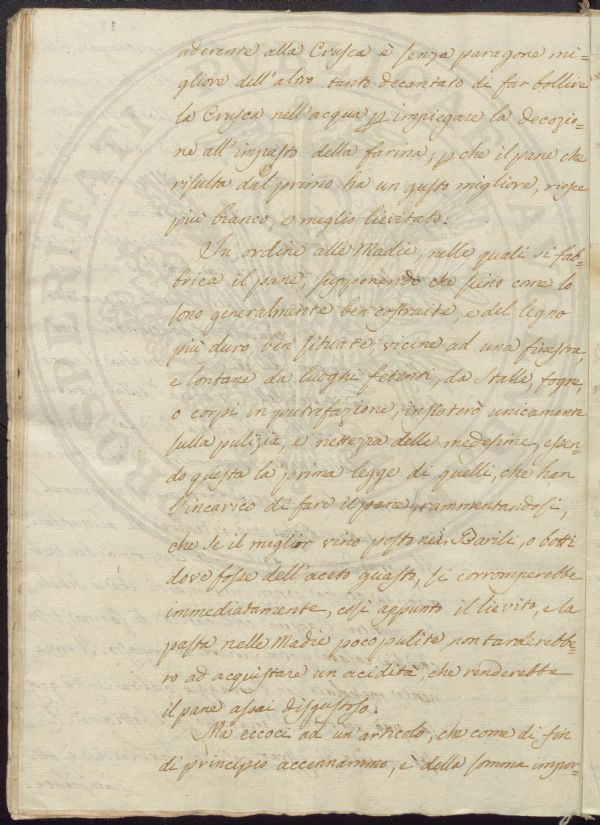 aderente alla Crusca è senza paragone mi=
gliore dell'altro tanto decantato di far bollire
la Crusca nell'acqua p impiegare la decozio=
ne all'impasto della farina, p che il pane che
risulta dal primo ha un gusto migliore, riesce
più bianco, e meglio lievitato.
In ordine alle Madie, nelle quali si fab=
brica il pane, supponendo che sieno come lo
sono generalmente ben costruite, e del legno
più duro, ben situate, vicine ad una finestra,
e lontane da luoghi fetenti, da Stalle, fogne,
o corpi in putrefazione, insisterò unicamente
sulla pulizia, e nettezza delle medesime, essen=
do questa la prima legge di quelli, che han
l'incarico di fare il pane, rammentandosi,
che se il miglior vino posto nei Barili, o botti
dove fosse dell'aceto guasto, si corromperebbe
immediatamente, così appunto il lievito, e la
pasta nelle Madie poco pulite, non tarderebbe=
ro ad acquistare un acidità, che renderebbe
il pane assai disgustoso.
Ma eccoci ad un articolo, che come di fin
di principio accennammo, è della somma impor=
PROSPERITATI PUBLICAE AUGENDAE